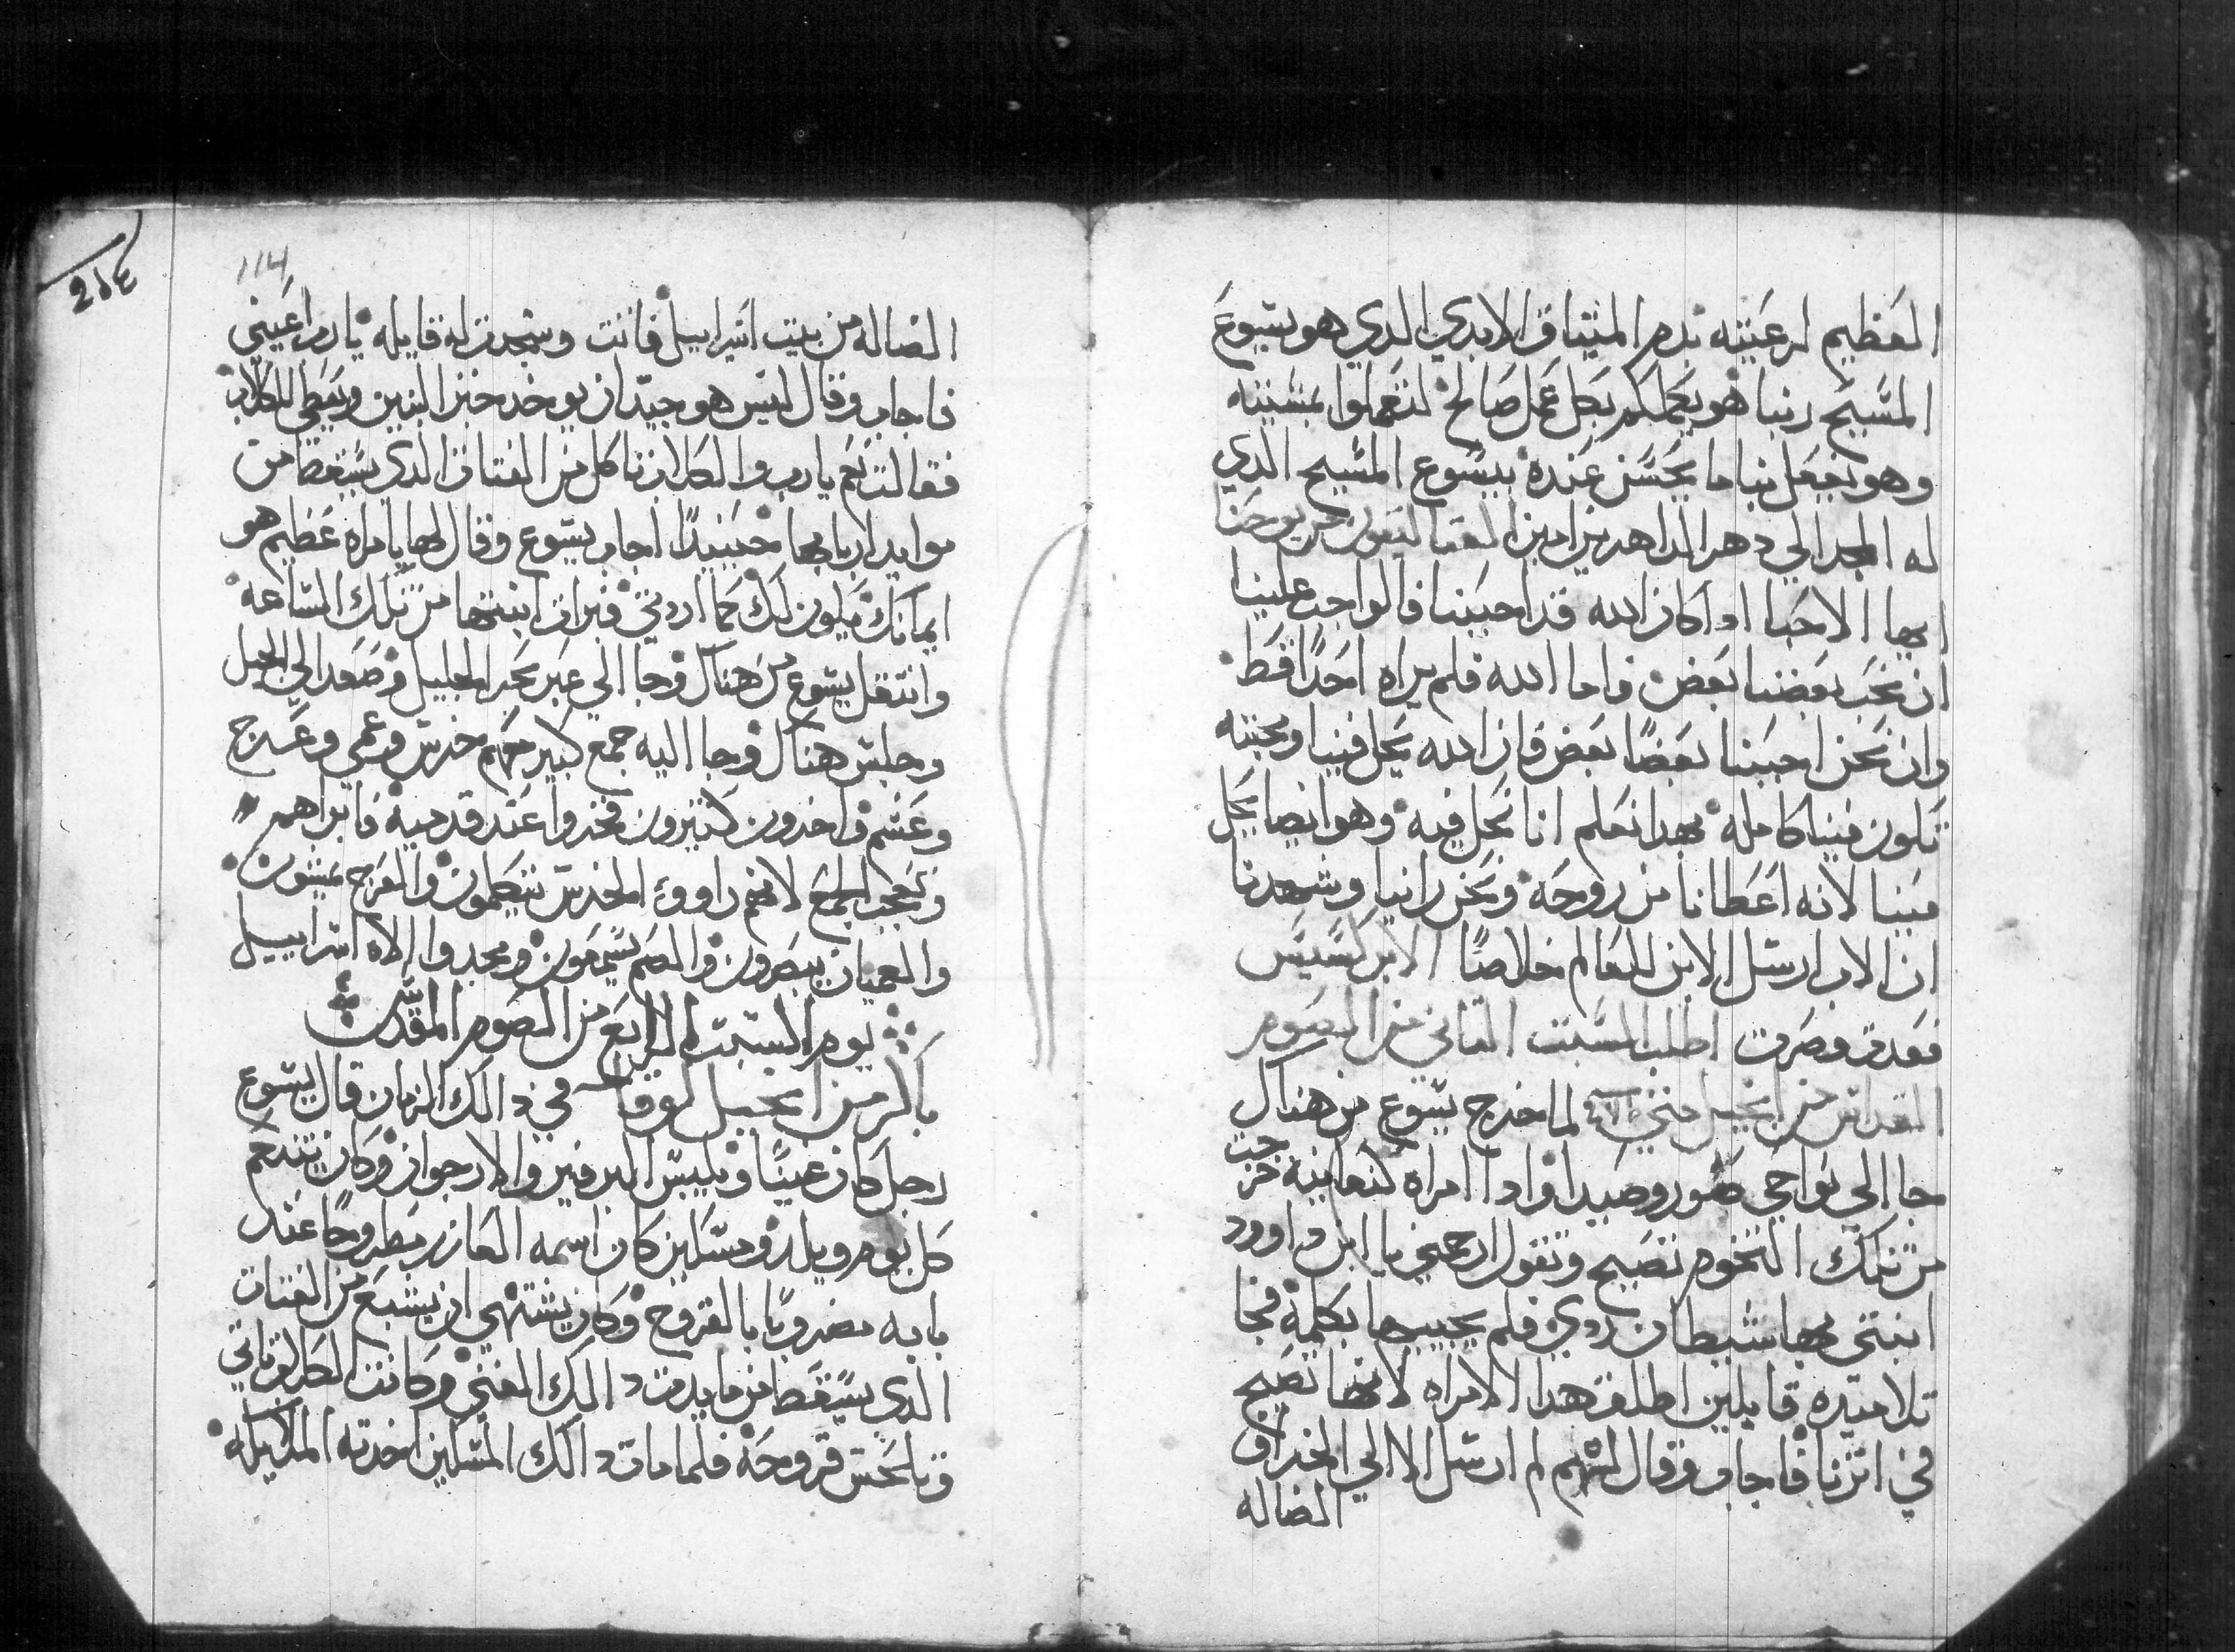 العظيم لرعيته بدم الميتاق الابدي الدي هو يسوع
المسيح ربنا هو يعملكم بكل عمل صالح لتعملوا بمسيته
وهو يفعل بنا ما يحسن عنده بيسوع المسيح الدي
له المجد الي دهر الداهرين امين يوحنا
ايها الاحبا ادا كان الله قد احبنا فالواجب علينا
ان نحب بعضنا بعض واما الله فلم يراه احدًا قط
وان نحن احببنا بعضًا بعض فان الله يحل فينا ومحبته
تكون فينا كامله بهدا نعلم انا نحل فيه وهو ايضا يحل
فينا لانه اعطانا من روحه ونحن راينا وشهدنا
ان الاب ارسل الابن للعالم خلاصًا الابركسيس
اطلب السبت التاني من الصوم
المقدس من انجيل متي لما خرج يسوع من هناك
جا الي نواحي صور وصيدا وادا امراه كنعانيه خرجت
من تلك التخوم تصيح وتقول ارحمني يا ابن داوود
ابنتي بها شيطان ردي فلم يجيبها بكلمة فجا
تلاميده قايلين اطلق هدا الامراه لانها تصيح
في اترنا فاجاب وقال لهم لم ارسل الا الي الخراف
الضاله
214
114
الضاله من بيت اسراييل فاتت وسجدت له قايله يا رب اعيني
فاجاب وقال ليس هو جيد ان يوخد خبز البنين ويعطي للكلاب
فقالت نعم يا رب والكلاب تاكل من الفتات الدي يسقط من
موايد اربابها حينيدًا اجاب يسوع وقال لها يا مراه عظيم هو
ايمانك يكون لك كما اردتي فبرات ابنتها من تلك الساعه
وانتقل يسوع من هناك وجا الي عبر بحر الجليل وصعد الي الجبل
وجلس هناك وجا اليه جمع كبير معهم خرس وعمي وعرج
وعسم واخرون كتيرون فخروا عند قدميه فابراهم
وتعجب الجمع لانهم راووء الخرس يتكلمون والعرج يمشون
والعميان يبصرون والصم يسمعون ومجدوا الاه اسراييل
يوم السبت الرابع من الصوم المقدس
باكر من انجيل لوقا في دالك الزمان قال يسوع
رجل كان غنيًا ويلبس البرفير والارجوان وكان يتنعم
كل يوم ويلد ومسكين كان اسمه العازر مطروحًا عند
بابه مضروبًا بالقروح وكان يشتهي ان يشبع من الفتات
الدي يسقط من مايدة دالك الغني وكانت الكلاب تاتي
وتلحس قروحه فلما مات دالك المسكين اخدته الملايكه